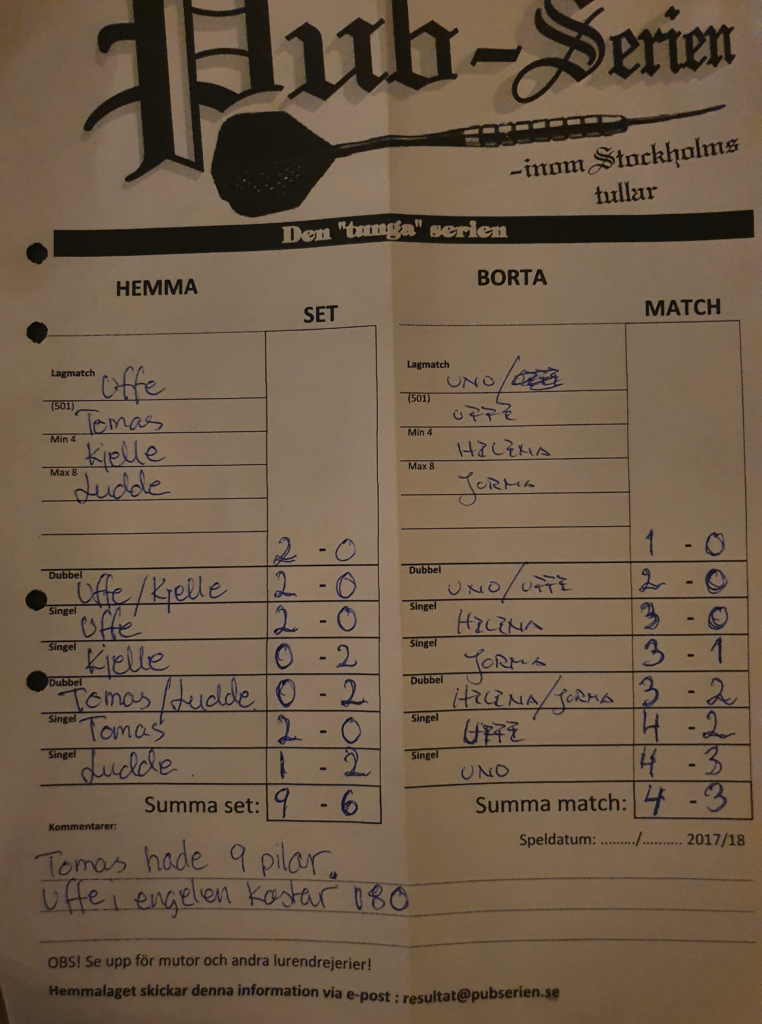 Pub-Serien
-inom Stockholms
tullar
Den "tunga" serien
HEMMA BORTA
SET MATCH
Lagmatch Uffe Lagmatch UNO/
(501) Tomas (501) UFFE
Min 4 Kjelle Min 4 HELENA
Max 8 Ludde Max 8 JORMA
2 - 0 1 - 0
Dubbel Uffe/Kjelle 2 - 0 Dubbel UNO/UFFE 2 - 0
Singel Uffe 2 - 0 Singel HELENA 3 - 0
Singel Kjelle 0 - 2 Singel JORMA 3 - 1
Dubbel Tomas/Ludde 0 - 2 Dubbel HELENA/JORMA 3 - 2
Singel Tomas 2 - 0 Singel UFFE 4 - 2
Singel Ludde 1 - 2 Singel UNO 4 - 3
Summa set: 9 - 6 Summa match: 4 - 3
Kommentarer: Speldatum: ........./.......... 2017/18
Tomas hade 9 pilar.
Uffe i engelen kastar 180
OBS! Se upp för mutor och andra lurendrejerier!
Hemmalaget skickar denna information via e-post : resultat@pubserien.se